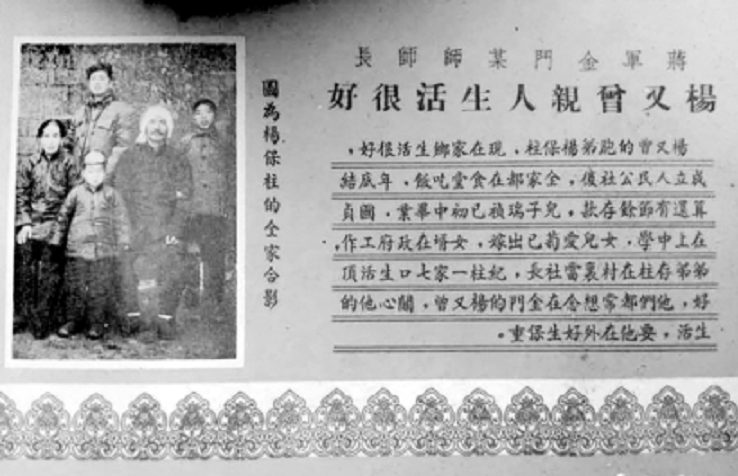 蔣軍金門某師師長
楊又曾親人生活很好
楊又曾的胞弟楊保柱,現在家鄉生活很好,
成立人民公社後,全家都在食堂吃飯,年底結
算還有節餘存款。兒子瑞禎已初中畢業,國貞
在上中學,女兒愛荀已出嫁,女壻在政府工作。
弟弟存柱在村裏當社長,紀柱一家七口生活頂
好,他們都常想念在金門的楊又曾,關心他的
生活,要他在外好生保重。
圖為楊保柱的全家合影